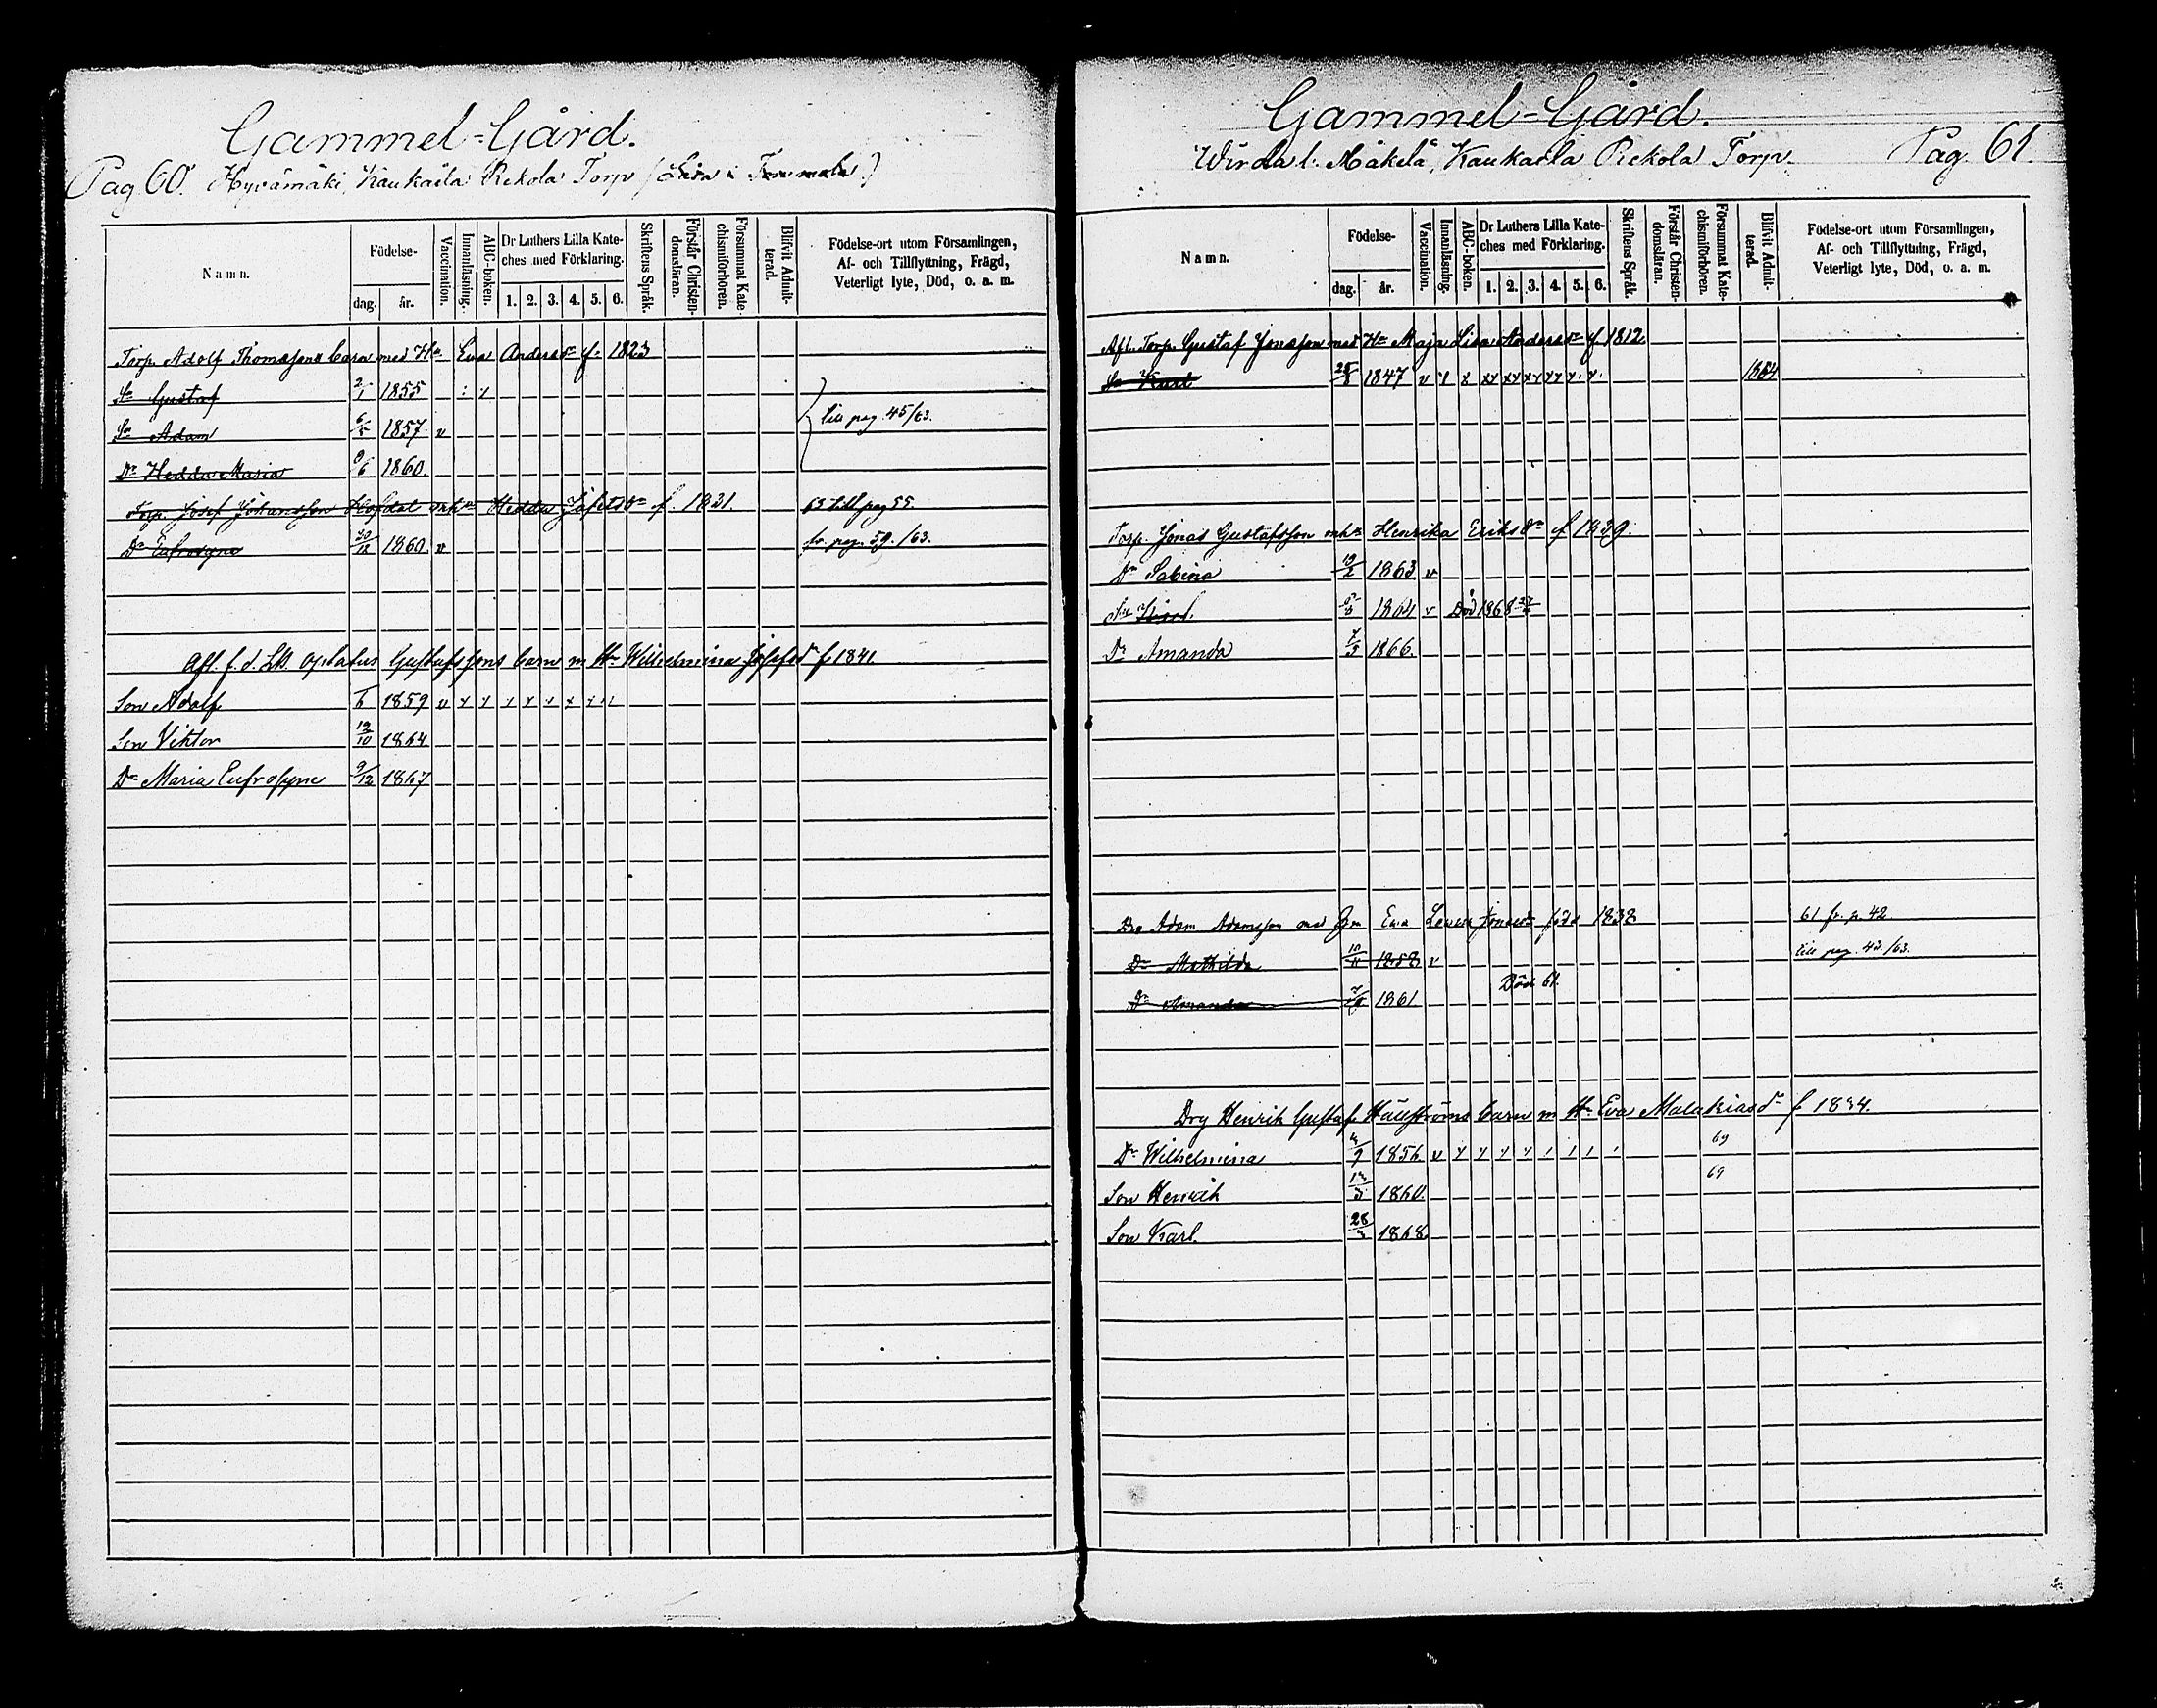 Gammel-Gård.
Pag 60. Hyvämäki, Kaukaila Rekola Torp
Namn.
Födelse-
dag.
år.
Vaccination.
Innanläsning.
ABC-boken.
Dr Luthers Lilla Kate-
ches med Förklaring.
1. 2. 3. 4. 5. 6.
Skriftens Språk.
Förstår Christen-
domsläran.
Försummat Kate-
chismiförhören.
Blifvit Admit-
terad.
Födelse-ort utom Församlingen,
Af- och Tillflyttning, Frägd,
Veterligt lyte, Död, o. a. m.
Torp. Adolf Thomassons barn med Hu Eva Andersdr f. 1823
Sn Gustaf 2/1 1855
till pag. 45/63.
Sn Adam 6/5 1857 v
Dr Hedda Maria 9/6 1860
Torp. Josef Johansson Hofdal mhu Hedda Jafetsdr f. 1831. 63 till pag 55.
Dr Eufrosyne 20/12 1860 v fr. pag. 59./63.
Afl. f. d. Ldb Gustafssons barn m Hu Wilhelmina Josefsdr f 1841.
Son Adolf 1859 v
Son Viktor 12/10 1864
Dr Maria Eufrosyne 9/12 1867
Gammel-Gård.
Wirda l. Mäkelä, Kaukaila Rekola Torp. Pag. 61.
Namn.
Födelse-
dag.
år.
Vaccination.
Innanläsning.
ABC-boken.
Dr Luthers Lilla Kate-
ches med Förklaring.
1. 2. 3. 4. 5. 6.
Skriftens Språk.
Förstår Christen-
domsläran.
Försummat Kate-
chismiförhören.
Blifvit Admit-
terad.
Födelse-ort utom Församlingen,
Af- och Tillflyttning, Frägd,
Veterligt lyte, Död, o. a. m.
Afl. Torp. Gustaf Jonasson med Hu Maja Lisa Andersdr f. 1812
Sn Karl 1847 v 1864
Torp. Jonas Gustafsson mhu Henrika Eriksdr f. 1839.
Dr Sabina 19/2 1863 v
1864 v Död 1868
Dr Amanda 1866.
Drg Adam Adamsson med Eva Lovisa Jonasdr född 1838 61 fr. p. 42.
Dr Mathilda 1858 v till pag. 43./63.
Död 61.
Dr Amanda 1861
Drg Henrik Gustaf Häggströms barn m Hu Eva Malakiasdr f 1834.
Dr Wilhelmina 1856 v 69
Son Henrik 1860. 69
Son Karl. 1868.